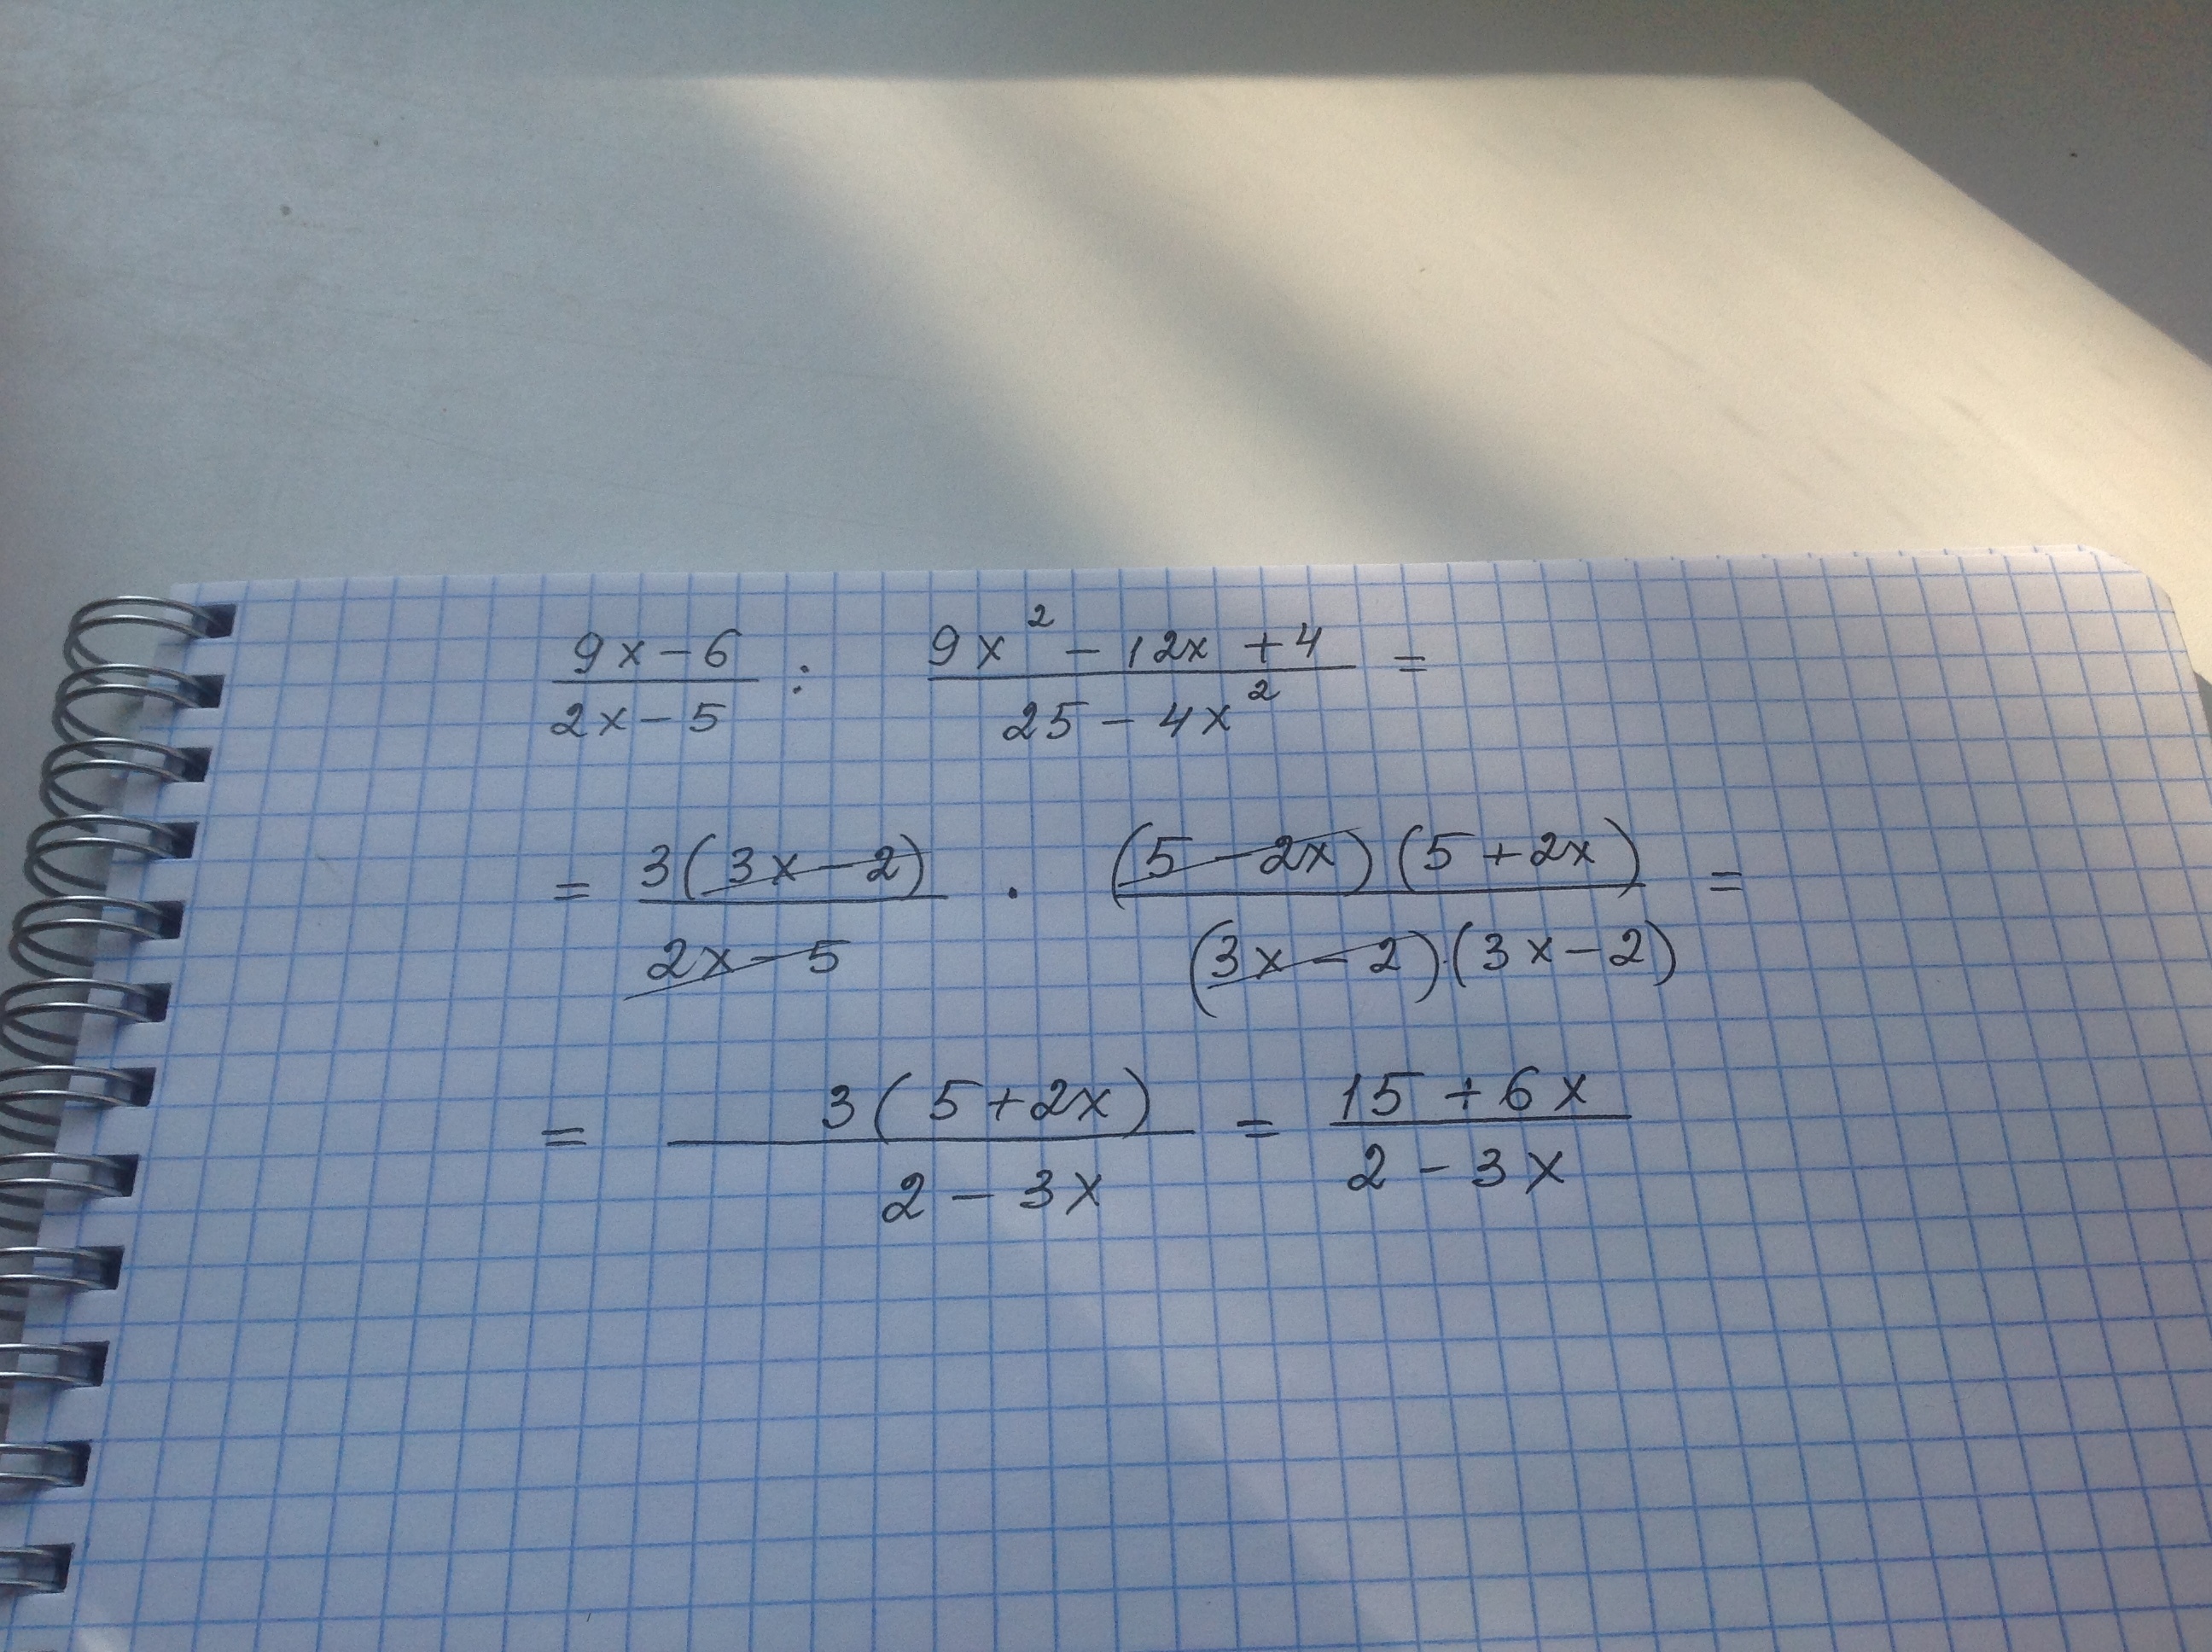 (9x-6)/(2x-5) : (9x²-12x+4)/(25-4x²) =
= 3(3x-2)/(2x-5) · (5-2x)(5+2x)/((3x-2)(3x-2)) =
= 3(5+2x)/(2-3x) = (15+6x)/(2-3x)